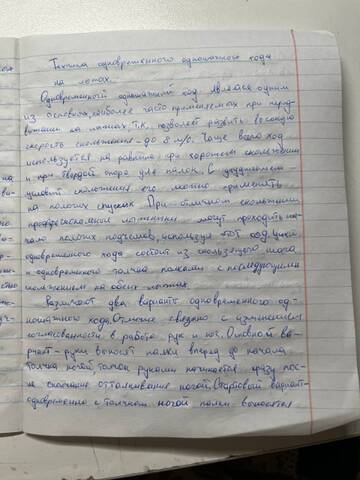 Техника одновременного одношажного хода
на лыжах.
Одновременный одношажный ход является одним
из основных, наиболее часто применяемых при пере-
движении на лыжах т.к. позволяет развить высокую
скорость скольжения - до 8 м/с. Чаще всего ход
используется на равнине при хорошем скольжении
и при твердой опоре для палок. В
условий скольжения его можно применять
на пологих спусках. При отличном скольжении
лыжники могут проходить на-
чало пологих подъемов, используя этот ход. Цикл
одновременного хода состоит из скользящего шага
и одновременного толчка палками с последующим
скольжением на обеих лыжах.
Различают два варианта одновременного од-
ношажного хода. Отличие связано с изменением
согласованности в работе рук и ног. Основной ва-
риант - руки выносят палки вперед до начала
толчка ногой, толчок руками начинается сразу пос-
ле окончания отталкивания ногой. Стартовый вариант-
одновременно с толчком ногой палки выносятся